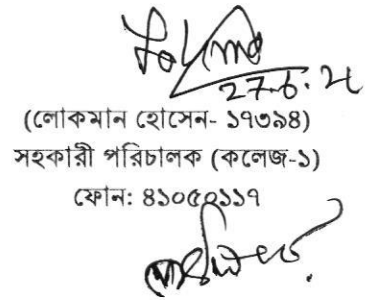 27.6.24
(লোকমান হোসেন- ১৭৩৯৪)
সহকারী পরিচালক (কলেজ-১)
ফোন: ৪১০৫০১১৭